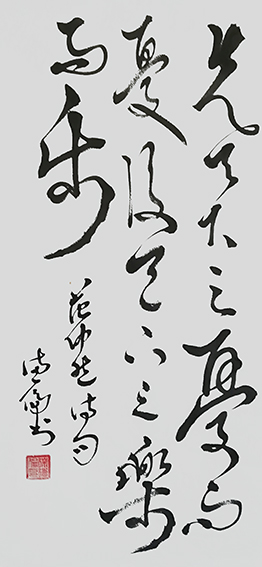 先天下之憂而
憂後天下之樂
而樂
范仲淹詩句